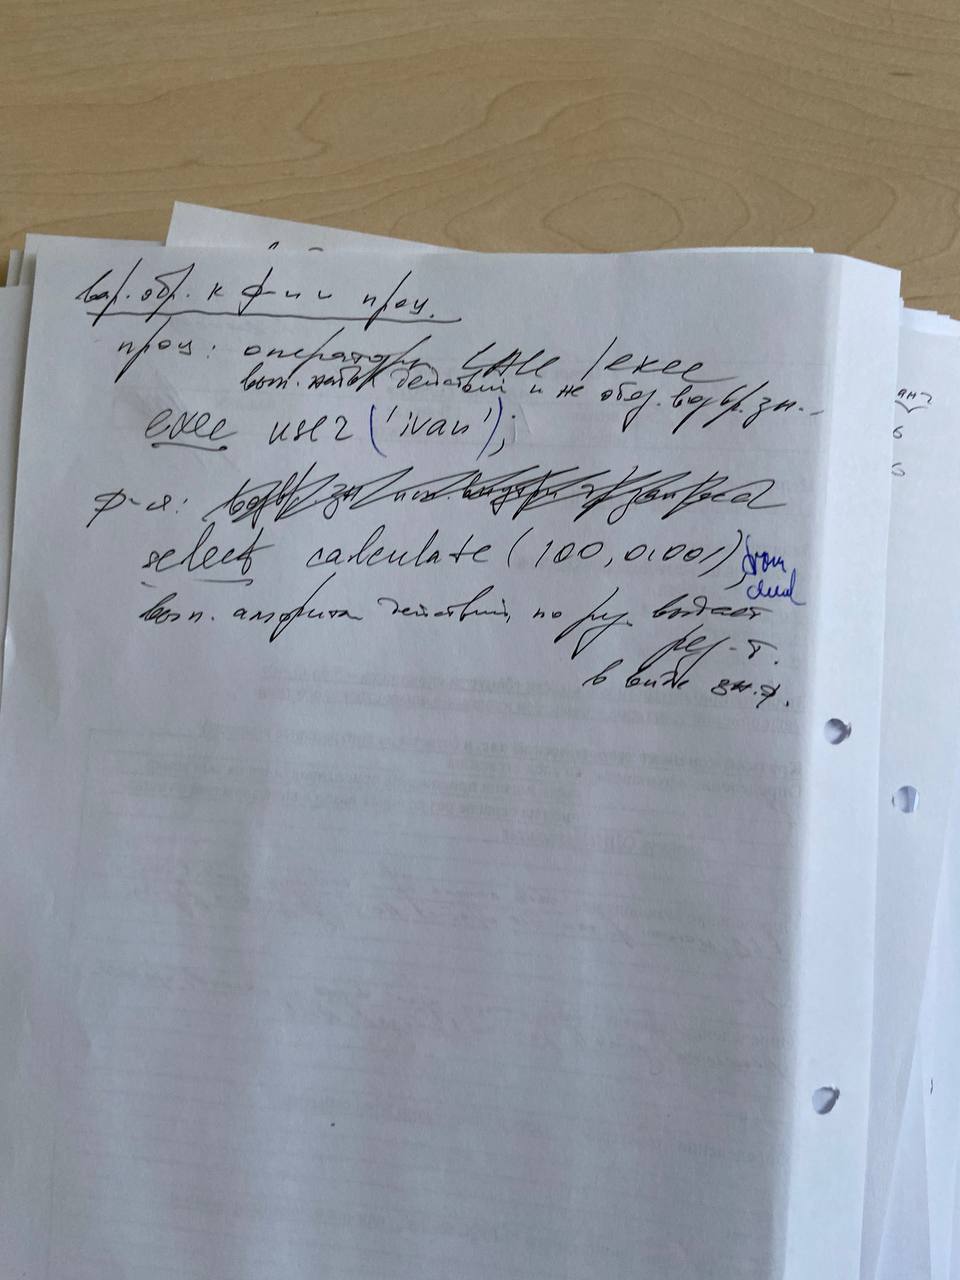 вар. обр. к ф-ии и проц.
проц: оператору CALL / exec
вып. набор действий и не обяз. возвр. зн.
exec user ('ivan');
ф-я:
select calculate (100, 0.001) from dual;
вып. алгоритм действий, по рез. выдает
рез-т.
в виде зн. ф.